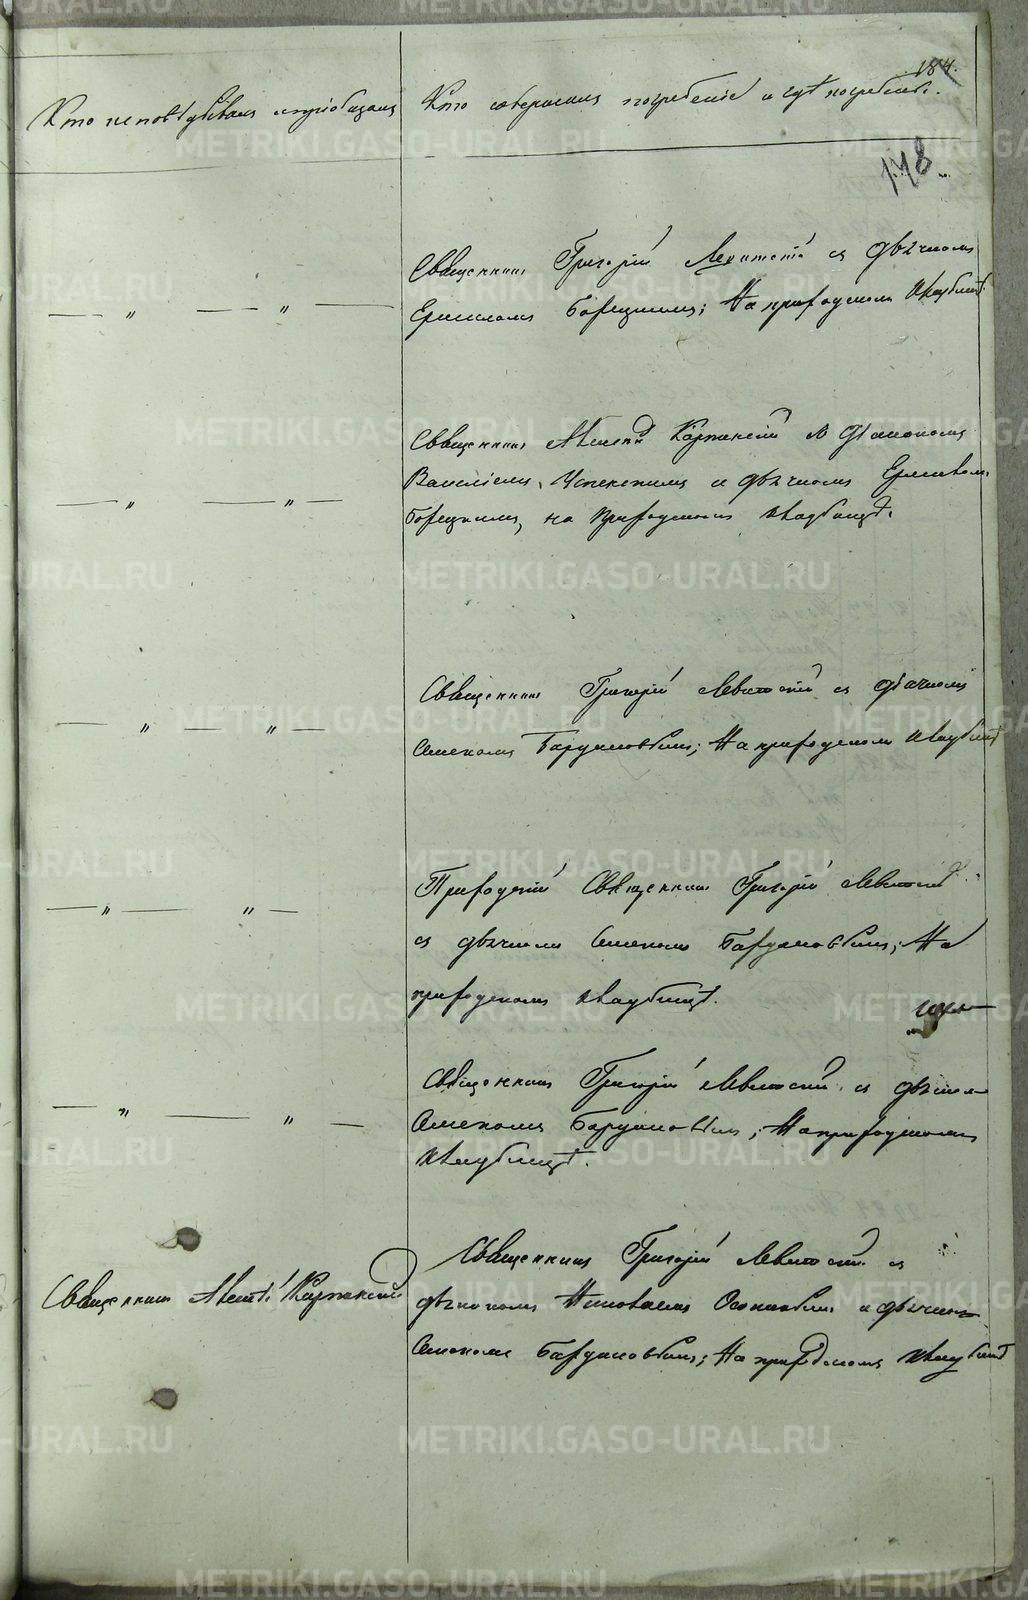 184.
Кто исповѣдывалъ и пріобщалъ
Кто совершалъ погребеніе и гдѣ погребены.
178
Священникъ Григорій Левитскій съ дьячкомъ
Ермиломъ Борецкимъ; На приходскомъ кладбищѣ.
— „ — „ —
Священникъ Алексѣй Карпинскій съ діакономъ
Василіемъ Успенскимъ и дьячкомъ
Борецкимъ, на приходскомъ кладбищѣ.
— „ — „ —
Священникъ Григорій Левитскій съ дьячкомъ
Семеномъ Бардуковымъ; На приходскомъ кладбищѣ
— „ — „ —
Приходскій Священникъ Григорій Левитскій
съ дьячкомъ Семеномъ; На
приходскомъ кладбищѣ.
— „ — „ —
Священникъ Григорій Левитскій съ дьячком
Семеномъ; На приходскомъ
кладбищѣ.
— „ — „ —
Священникъ Карпинскій
Священникъ Григорій Левитскій съ
дьякономъ и дьячкомъ
Семеномъ; На приходскомъ кладбищѣ